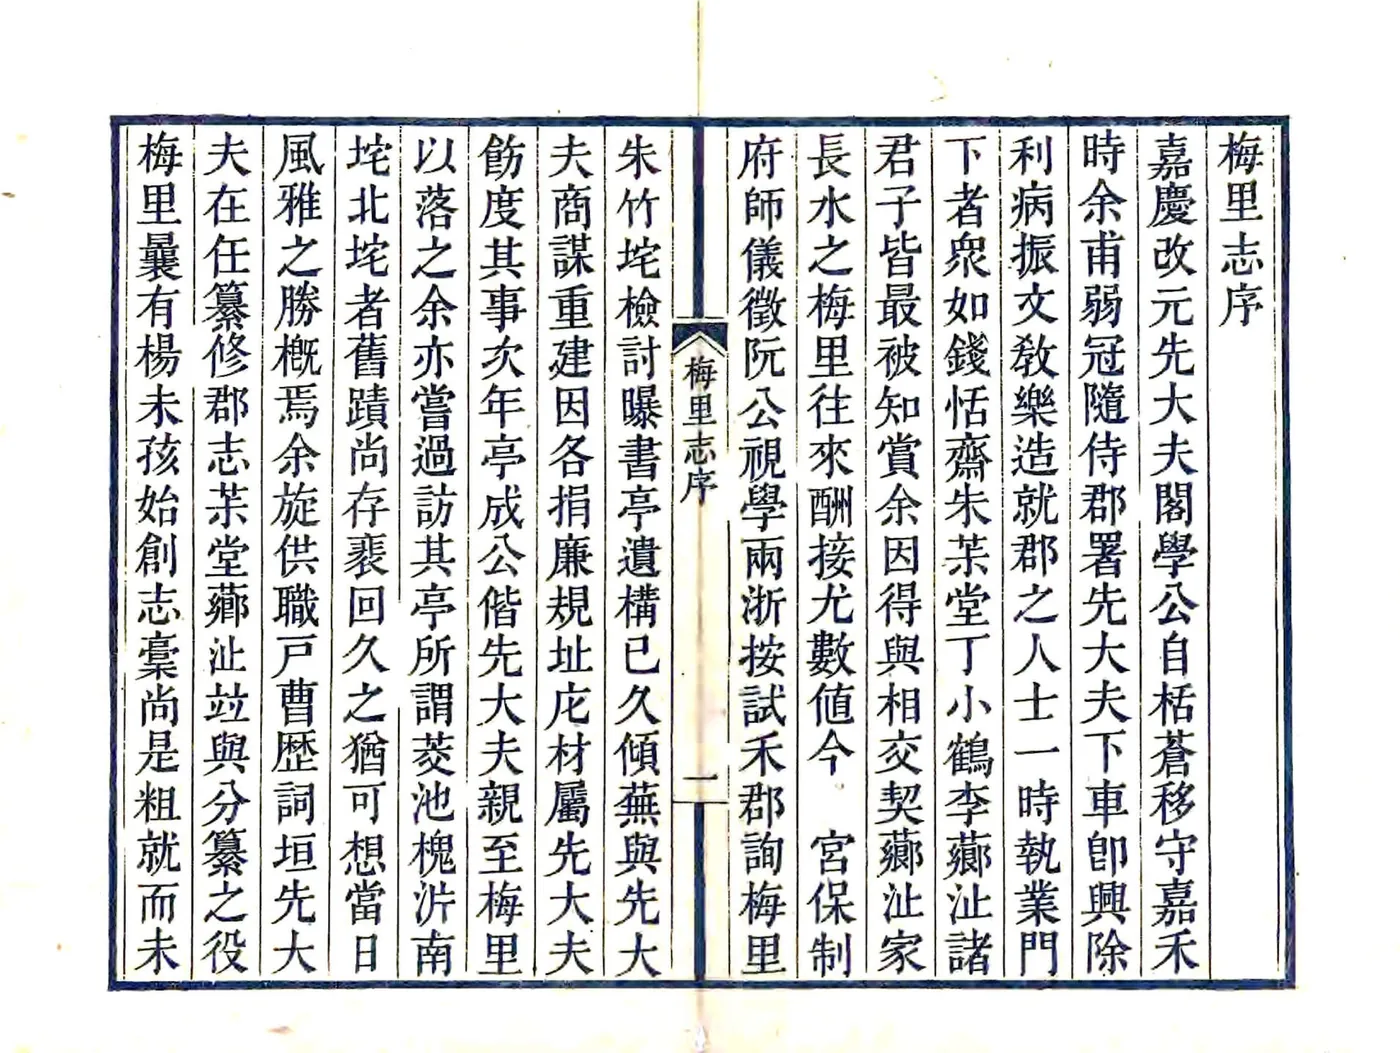 梅里志序
嘉慶改元先大夫閣學公自栝蒼移守嘉禾
時余甫弱冠隨侍郡署先大夫下車卽興除
利病振文敎樂造就郡之人士一時執業門
下者衆如錢恬齋朱茮堂丁小鶴李薌沚諸
君子皆最被知賞余因得與相交契薌沚家
長水之梅里往來酬接尤數値今　宮保制
府師儀徵阮公視學兩浙按試禾郡詢梅里
梅里志序
一
朱竹垞檢討曝書亭遺構已久傾蕪與先大
夫商謀重建因各捐廉規址庀材屬先大夫
飭度其事次年亭成公偕先大夫親至梅里
以落之余亦嘗過訪其亭所謂菱池槐沜南
垞北垞者舊蹟尚存裴回久之猶可想當日
風雅之勝槪焉余旋供職戸曹歷詞垣先大
夫在任纂修郡志茮堂薌沚竝與分纂之役
梅里曩有楊未孩始創志稾尚是粗就而未